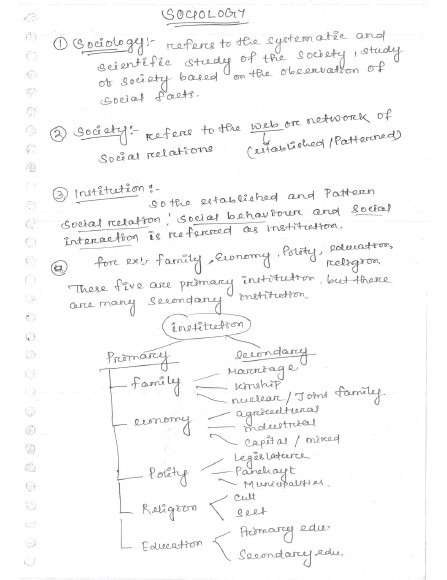 SOCIOLOGY
① Sociology:- refers to the systematic and
scientific study of the society, study
of society based on the observation of
social facts.
② Society:- refers to the web or network of
social relations (established/Patterned)
③ Institution:-
So the established and Pattern
social relation, social behaviour and social
interaction is referred as institution.
④ for ex:- family, Economy, Polity, education,
Religion
These five are primary institution. but there
are many secondary institution.
institution
Primary Secondary
family Marriage
Kinship
nuclear / Joint family
economy agricultural
industrial
capital / mixed
Polity Legislature
Panchayt
Municipalities.
Religion cult
sect
Education Primary edu.
Secondary edu.